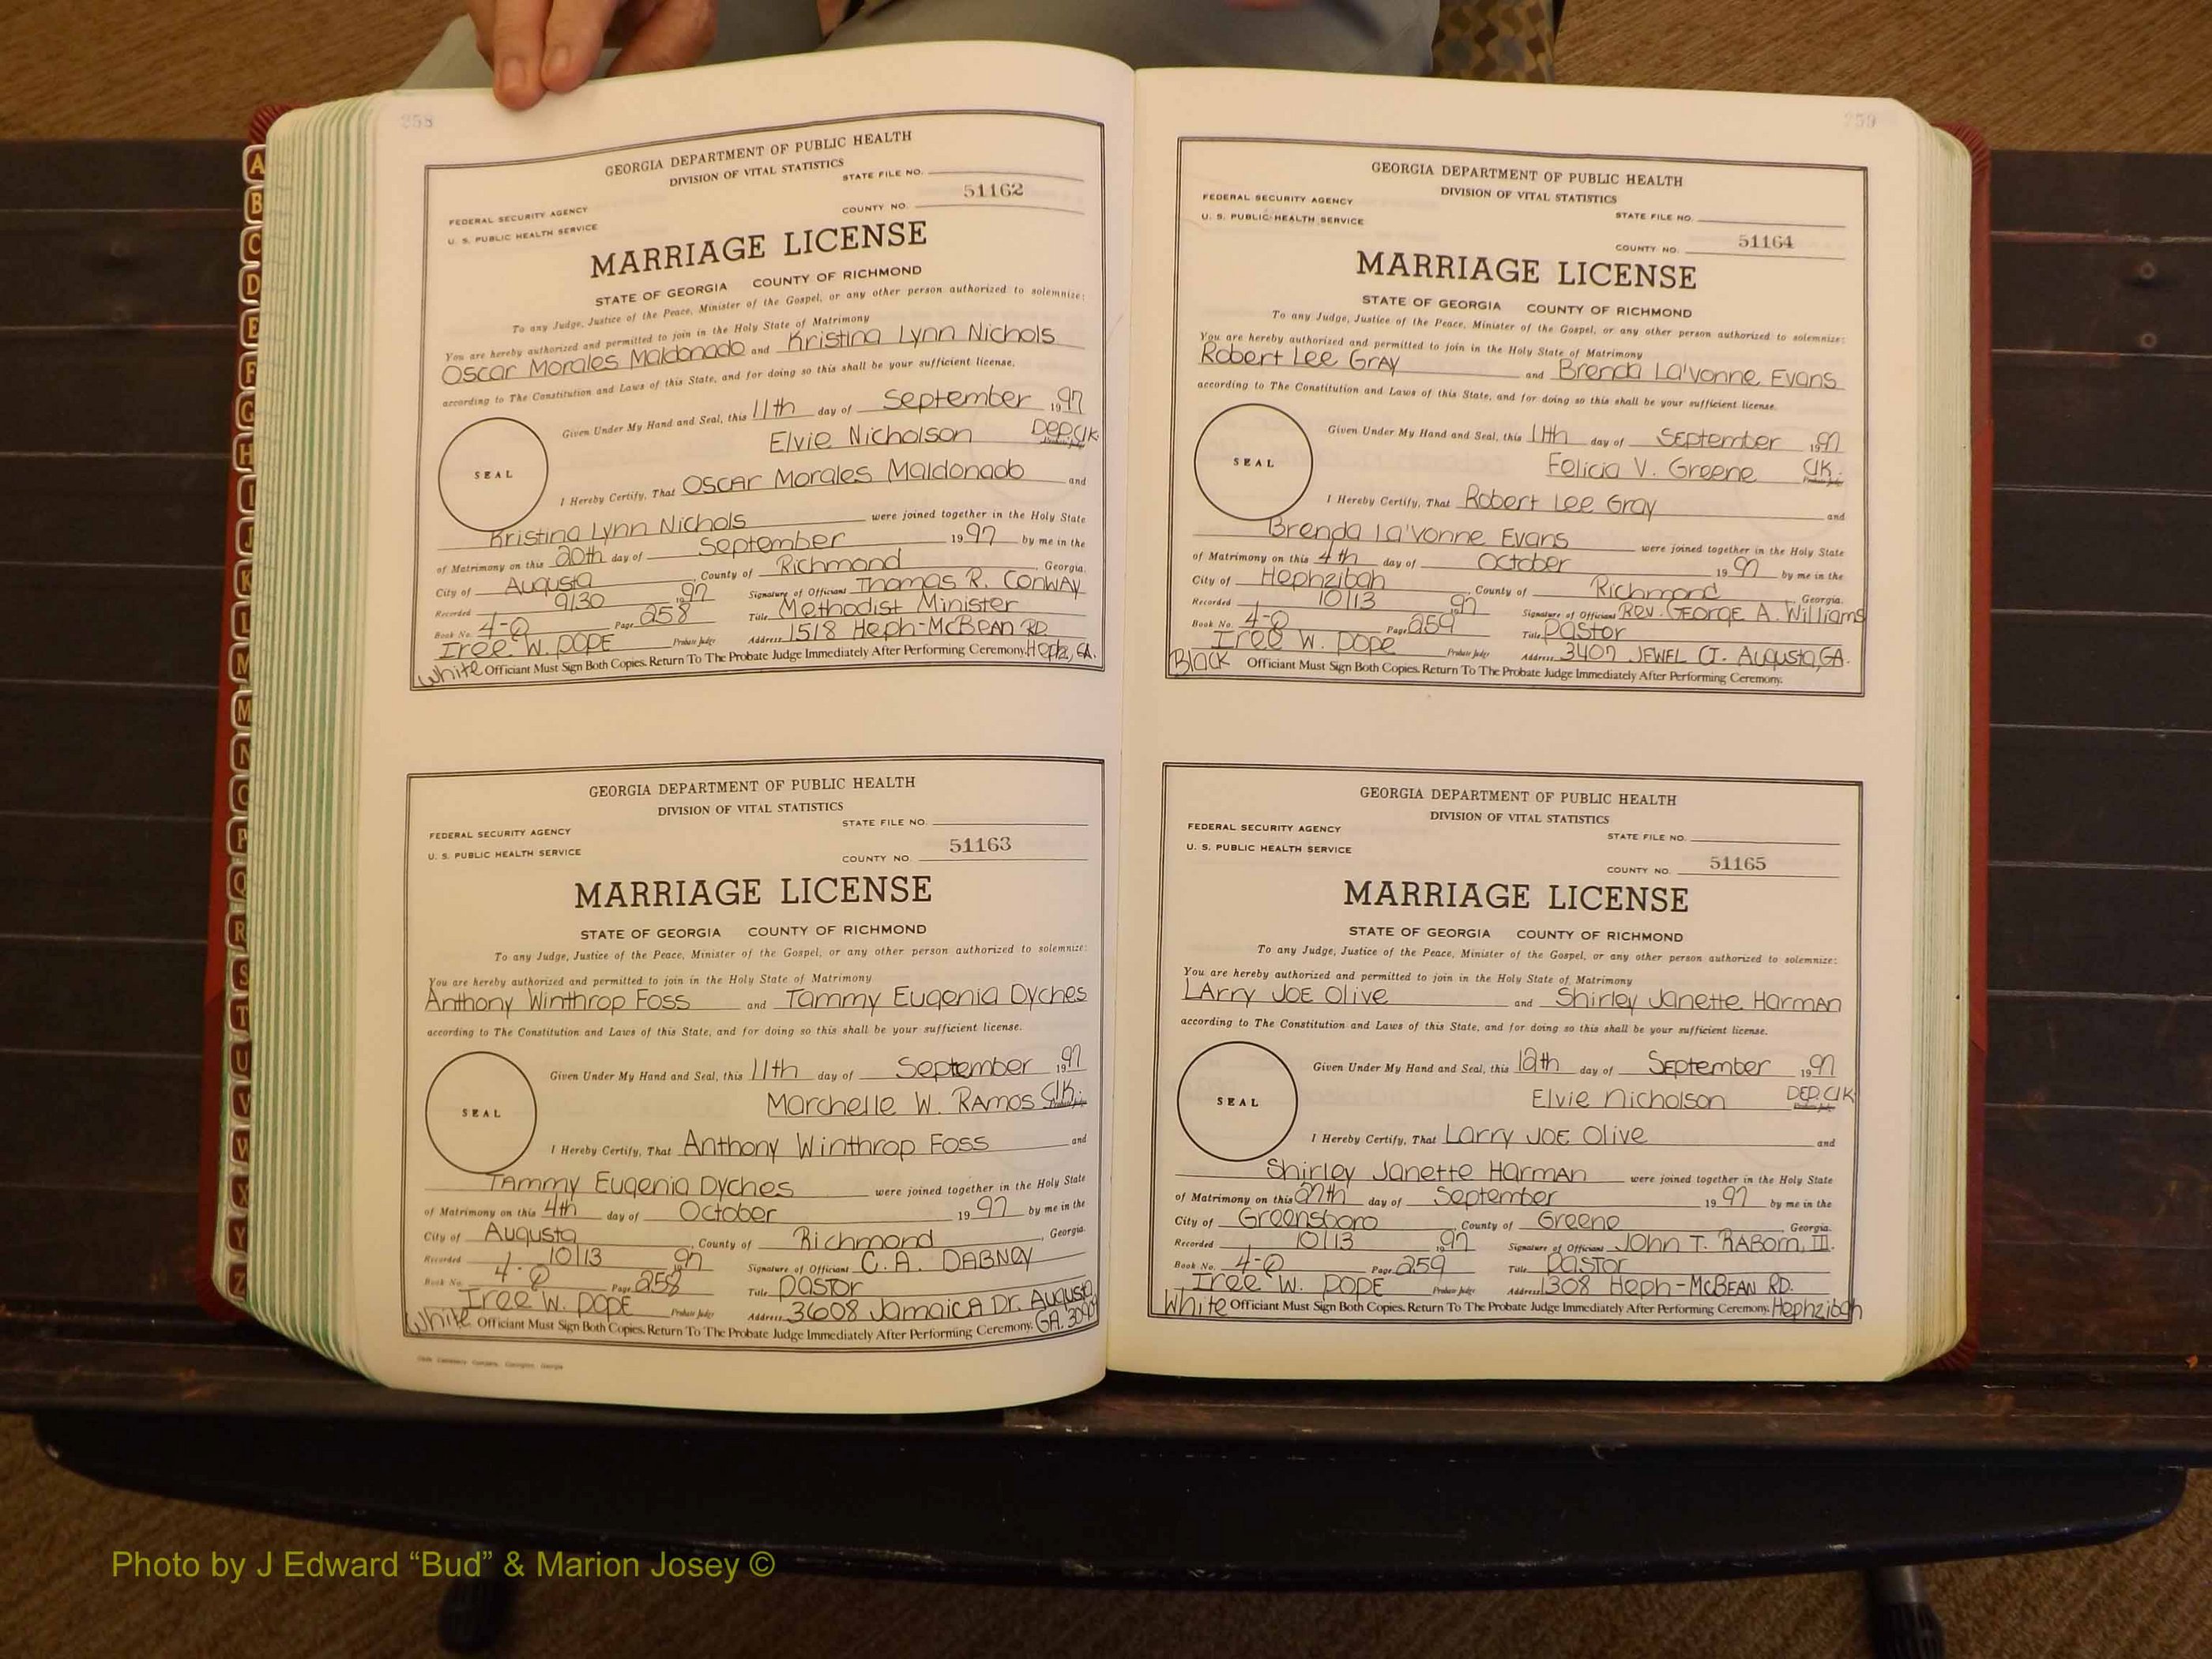 358
GEORGIA DEPARTMENT OF PUBLIC HEALTH
DIVISION OF VITAL STATISTICS
STATE FILE NO.
FEDERAL SECURITY AGENCY
U. S. PUBLIC HEALTH SERVICE
COUNTY NO. 51162
MARRIAGE LICENSE
STATE OF GEORGIA COUNTY OF RICHMOND
To any Judge, Justice of the Peace, Minister of the Gospel, or any other person authorized to solemnize:
You are hereby authorized and permitted to join in the Holy State of Matrimony
Oscar Morales Maldonado and Kristina Lynn Nichols
according to The Constitution and Laws of this State, and for doing so this shall be your sufficient license.
Given Under My Hand and Seal, this 11th day of September 1997
Elvie Nicholson DEP. Clk.
Probate Judge
SEAL
I Hereby Certify, That Oscar Morales Maldonado and
Kristina Lynn Nichols were joined together in the Holy State
of Matrimony on this 20th day of September 1997 by me in the
City of Augusta, County of Richmond, Georgia.
Recorded 9/30 1997 Signature of Officiant Thomas R. Conway
Book No. 4-Q Page 258 Title Methodist Minister
Iree W. Pope Probate Judge Address 1518 Heph-McBean Rd.
White Officiant Must Sign Both Copies. Return To The Probate Judge Immediately After Performing Ceremony. Hepz, GA.
GEORGIA DEPARTMENT OF PUBLIC HEALTH
DIVISION OF VITAL STATISTICS
STATE FILE NO.
FEDERAL SECURITY AGENCY
U. S. PUBLIC HEALTH SERVICE
COUNTY NO. 51163
MARRIAGE LICENSE
STATE OF GEORGIA COUNTY OF RICHMOND
To any Judge, Justice of the Peace, Minister of the Gospel, or any other person authorized to solemnize:
You are hereby authorized and permitted to join in the Holy State of Matrimony
Anthony Winthrop Foss and Tammy Eugenia Dyches
according to The Constitution and Laws of this State, and for doing so this shall be your sufficient license.
Given Under My Hand and Seal, this 11th day of September 1997
Marchelle W. Ramos Clk.
Probate Judge
SEAL
I Hereby Certify, That Anthony Winthrop Foss and
Tammy Eugenia Dyches were joined together in the Holy State
of Matrimony on this 4th day of October 1997 by me in the
City of Augusta, County of Richmond, Georgia.
Recorded 10/13 1997 Signature of Officiant C. A. Dabney
Book No. 4-Q Page 258 Title Pastor
Iree W. Pope Probate Judge Address 3608 Jamaica Dr. Augusta
White Officiant Must Sign Both Copies. Return To The Probate Judge Immediately After Performing Ceremony. GA.
259
GEORGIA DEPARTMENT OF PUBLIC HEALTH
DIVISION OF VITAL STATISTICS
FEDERAL SECURITY AGENCY
U. S. PUBLIC HEALTH SERVICE
STATE FILE NO.
COUNTY NO. 51164
MARRIAGE LICENSE
STATE OF GEORGIA COUNTY OF RICHMOND
To any Judge, Justice of the Peace, Minister of the Gospel, or any other person authorized to solemnize:
You are hereby authorized and permitted to join in the Holy State of Matrimony
Robert Lee Gray and Brenda La'vonne Evans
according to The Constitution and Laws of this State, and for doing so this shall be your sufficient license.
Given Under My Hand and Seal, this 11th day of September 1997
Felicia V. Greene Clk.
Probate Judge
SEAL
I Hereby Certify, That Robert Lee Gray and
Brenda La'vonne Evans were joined together in the Holy State
of Matrimony on this 4th day of October 1997 by me in the
City of Hephzibah, County of Richmond, Georgia.
Recorded 10/13 1997 Signature of Officiant Rev. George A. Williams
Book No. 4-Q Page 259 Title Pastor
Iree W. Pope Probate Judge Address 3407 Jewel Ct. Augusta, GA.
Black Officiant Must Sign Both Copies. Return To The Probate Judge Immediately After Performing Ceremony.
GEORGIA DEPARTMENT OF PUBLIC HEALTH
DIVISION OF VITAL STATISTICS
FEDERAL SECURITY AGENCY
U. S. PUBLIC HEALTH SERVICE
STATE FILE NO.
COUNTY NO. 51165
MARRIAGE LICENSE
STATE OF GEORGIA COUNTY OF RICHMOND
To any Judge, Justice of the Peace, Minister of the Gospel, or any other person authorized to solemnize:
You are hereby authorized and permitted to join in the Holy State of Matrimony
Larry Joe Olive and Shirley Janette Harman
according to The Constitution and Laws of this State, and for doing so this shall be your sufficient license.
Given Under My Hand and Seal, this 12th day of September 1997
Elvie Nicholson DEP. Clk
Probate Judge
SEAL
I Hereby Certify, That Larry Joe Olive and
Shirley Janette Harman were joined together in the Holy State
of Matrimony on this 27th day of September 1997 by me in the
City of Greensboro, County of Greene, Georgia.
Recorded 10/13 1997 Signature of Officiant John T. Raborn, III.
Book No. 4-Q Page 259 Title Pastor
Iree W. Pope Probate Judge Address 1308 Heph-McBean Rd.
White Officiant Must Sign Both Copies. Return To The Probate Judge Immediately After Performing Ceremony. Hephzibah
A
B
C
D
E
F
G
H
I
J
K
L
M
M
N
O
P
Q
R
S
T
U
V
W
X
Y
Z
Photo by J Edward “Bud” & Marion Josey ©